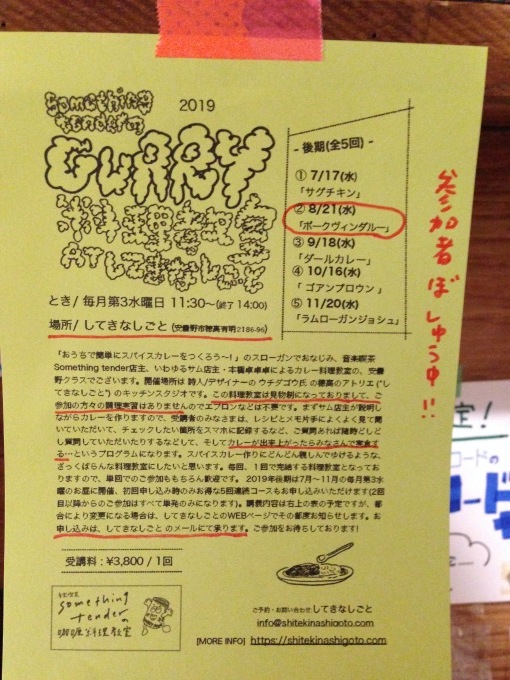 something
tenderの
2019
CURRY
料理教室
AT してきなしごと
とき/ 毎月第3水曜日 11:30〜(終了 14:00)
場所/ してきなしごと (安曇野市穂高有明2186-96)
- 後期(全5回) -
① 7/17(水)
「サグチキン」
② 8/21(水)
「ポークヴィンダルー」
③ 9/18(水)
「ダールカレー」
④ 10/16(水)
「ゴアンプロウン」
⑤ 11/20(水)
「ラムローガンジョシュ」
参加者ぼしゅう中!!
「おうちで簡単にスパイスカレーをつくろう〜！」のスローガンでおなじみ、音楽喫茶
Something tender店主、いわゆるサム店主・本種卓卓卓によるカレー料理教室の、安曇
野クラスでございます。開催場所は 詩人/デザイナーの ウチダゴウ氏 の穂高のアトリエ ("し
てきなしごと") のキッチンスタジオです。この料理教室は見物制になっておりまして、ご
参加の方々の調理実習はありませんのでエプロンなどは不要です。まずサム店主が説明し
ながらカレーを作りますので、受講者のみなさまは、レシピとメモ片手によくよく見て聞
いていただいて、チェックしたい箇所をスマホに記録するなど、ご質問あれば随時どしど
し質問していただいたりするなどして、そしてカレーが出来上がったらみなさんで実食す
る…というプログラムになります。スパイスカレー作りにどんどん親しんでゆけるような、
ざっくばらんな料理教室にしたいと思います。毎回、1回で完結する料理教室となってお
りますので、単回でのご参加ももちろん歓迎です。2019年後期は7月〜11月の毎月第3水
曜のお昼に開催、初回申し込み時のみお得な5回連続コースもお申し込みいただけます(2回
目以降からのご参加はすべて単発のみになります)。講義内容は右上の表の予定ですが、都
合により変更になる場合は、してきなしごとのWEBページでその都度お知らせします。お
申し込みは、してきなしごと のメールにて承ります。ご参加をお待ちしております!
受講料 : ¥3,800 / 1回
音楽喫茶
something
tenderの
咖喱料理教室
ご予約・お問い合わせ してきなしごと
info@shitekinashigoto.com
[MORE INFO] https://shitekinashigoto.com
定!
コードの